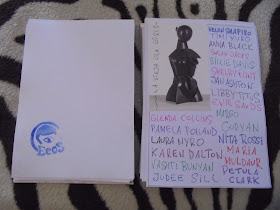 Ecos
HELEN SHAPIRO
TIMI YURO
ANNA BLACK
BILLIE DAVIS
SHELBY FLINT
JAN ASHTON
LIBBY TITUS
EVIE SANDS
MARGO
GURYAN
NITA ROSSI
MARIA
MULDAUR
PETULA
CLARK
GLENDA COLLINS
PAMELA POLLAND
LAURA NYRO
KAREN DALTON
VASHTI BUNYAN
JUDEE SILL